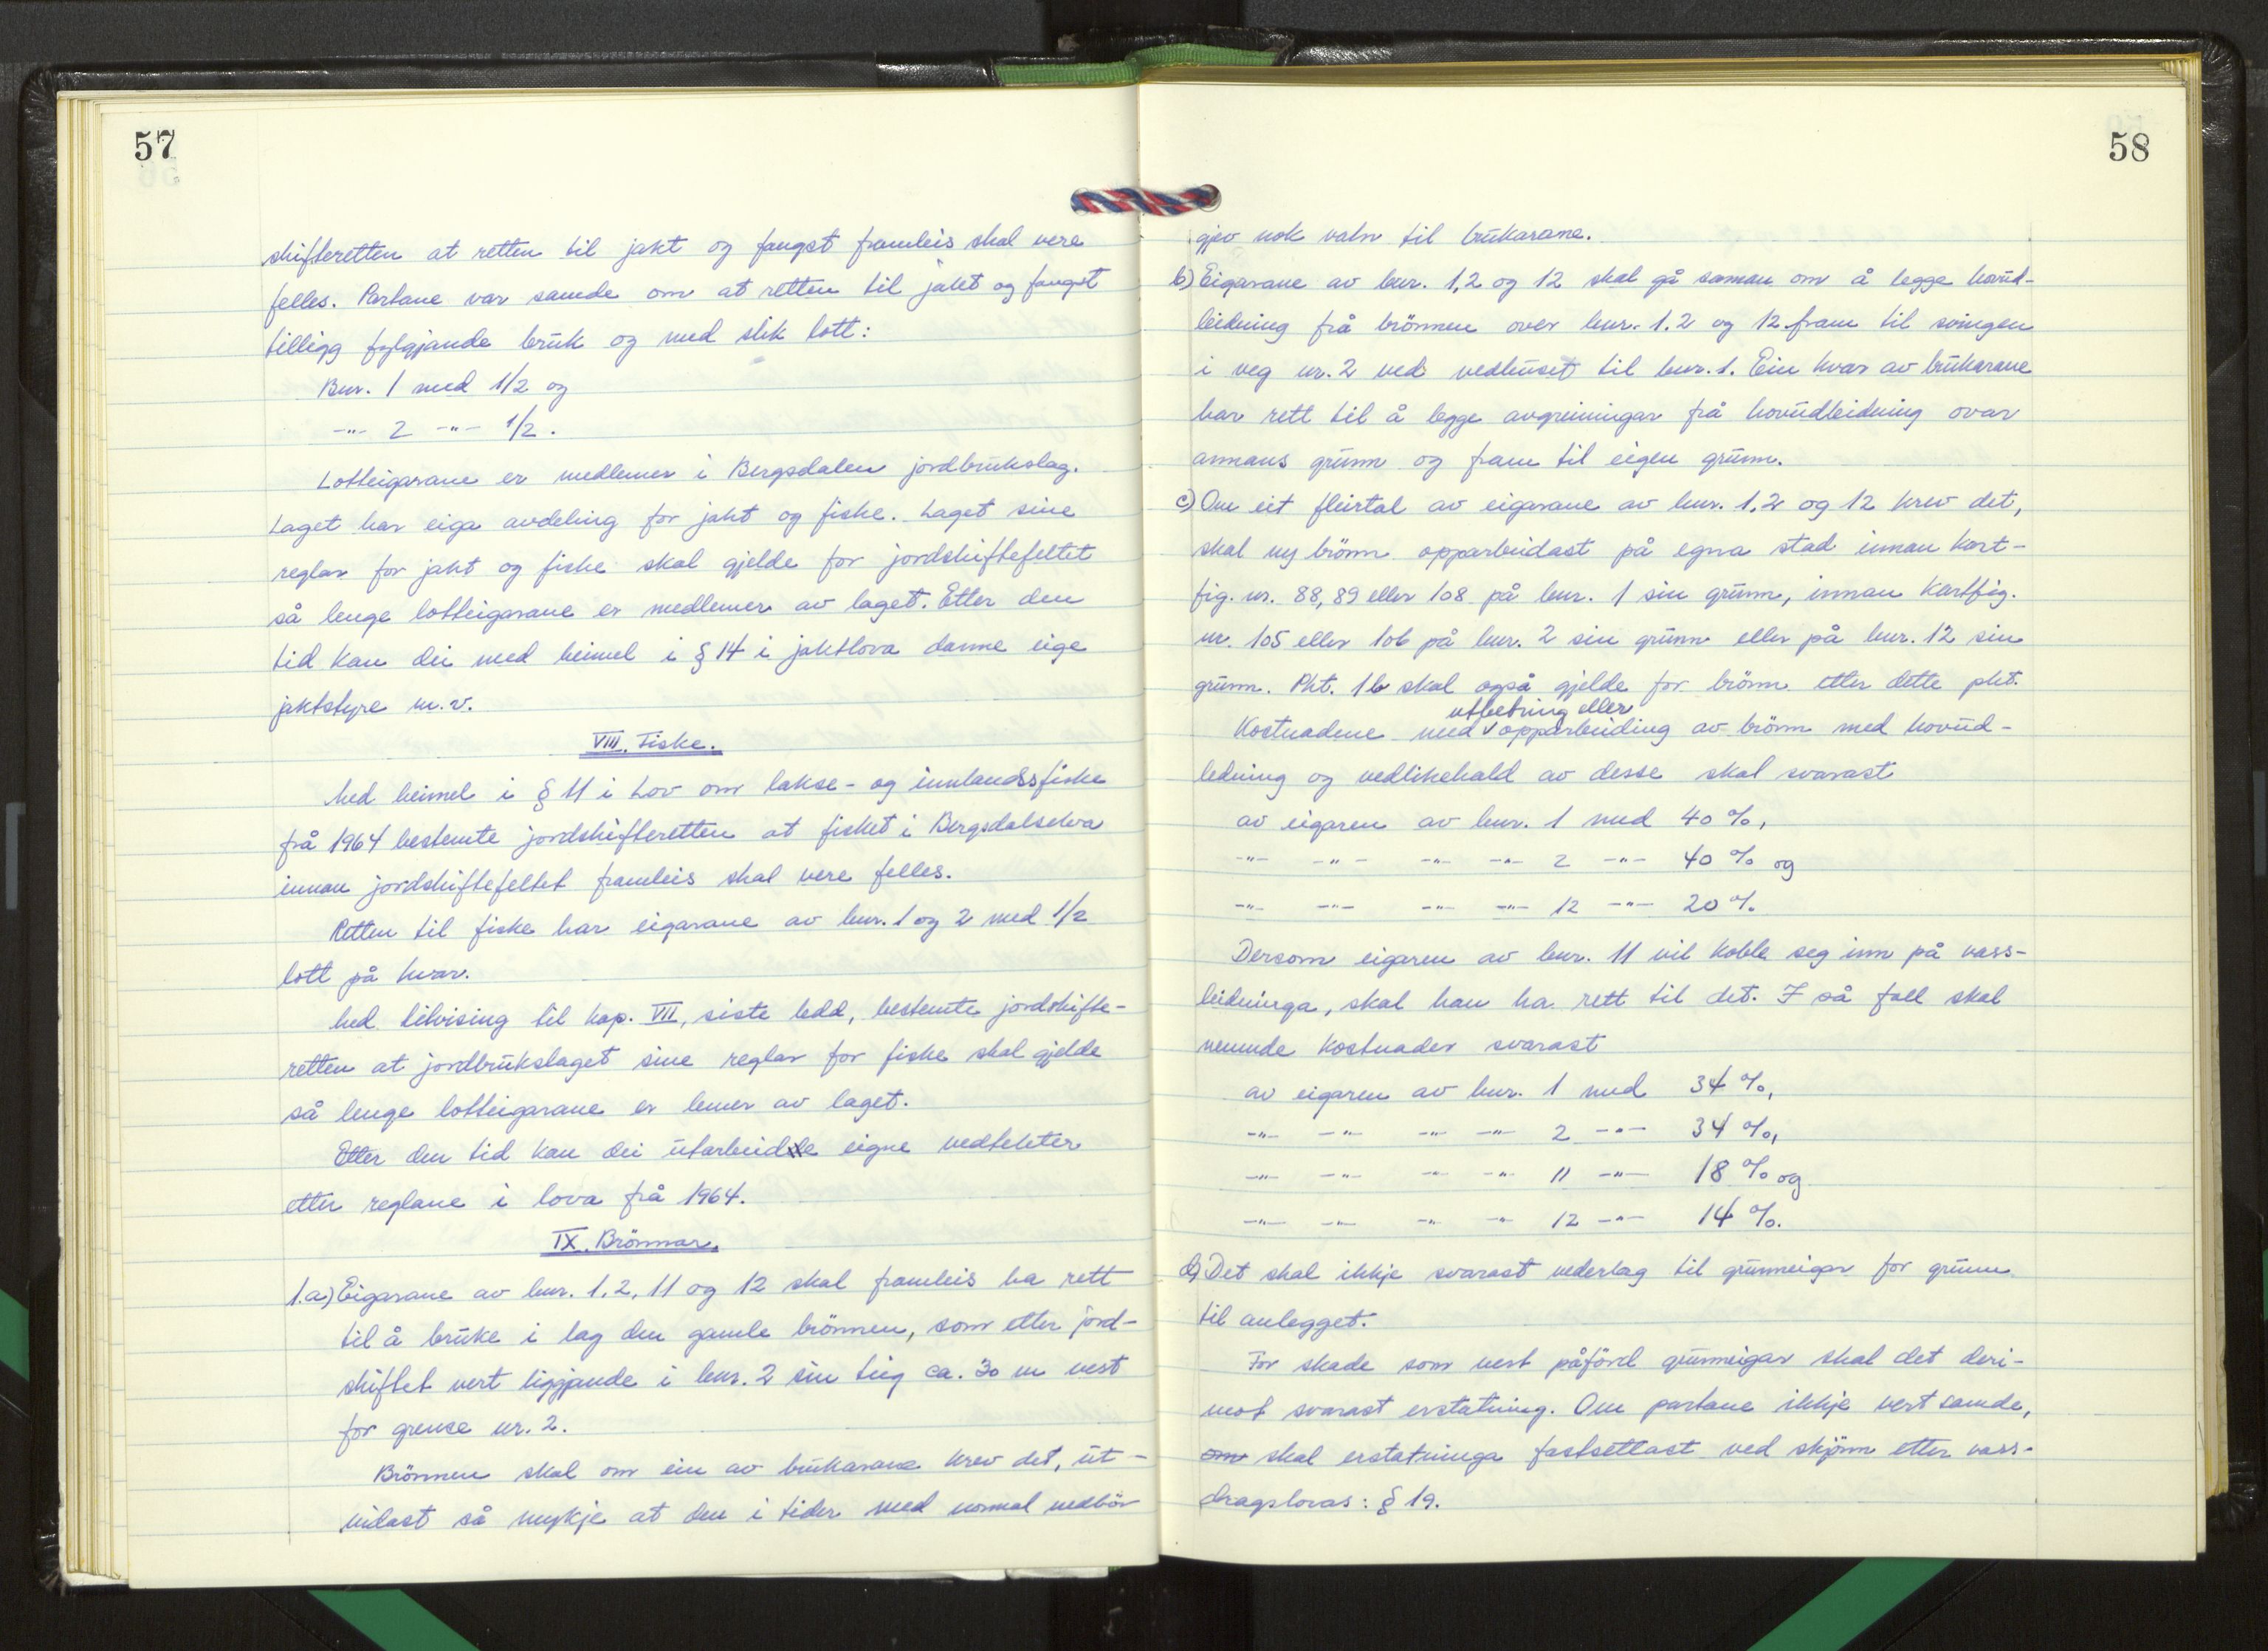 57
skifteretten at retten til jakt og fangst framleis skal vere
felles. Partane var samde om at retten til jakt og fangst
tilligg fylgjande bruk og med slik lott:
Bnr. 1 med 1/2 og
-"- 2 -"- 1/2.
Lotteigarane er medlemer i Bergsdalen jordbrukslag.
Laget har eiga avdeling for jakt og fiske. Laget sine
reglar for jakt og fiske skal gjelde for jordskiftefeltet
så lenge lotteigarane er medlemer av laget. Etter den
tid kan dei med heimel i § 14 i jaktlova danne eige
jaktstyre m.v.
VIII. Fiske.
Med heimel i § 11 i Lov om lakse- og innlandsfiske
frå 1964 bestemte jordskifteretten at fisket i Bergsdalselva
innan jordskiftefeltet framleis skal vere felles.
Retten til fiske har eigarane av bnr. 1 og 2 med 1/2
lott på kvar.
Med tilvising til kap. VII, siste ledd, bestemte jordskifte-
retten at jordbrukslaget sine reglar for fiske skal gjelde
så lenge lotteigarane er lemer av laget.
Etter den tid kan dei utarbeide eigne vedtekter
etter reglane i lova frå 1964.
IX. Brönnar.
1.a) Eigarane av bnr. 1, 2, 11 og 12 skal framleis ha rett
til å bruke i lag den gamle brönnen, som etter jord-
skiftet vert liggjande i bnr. 2 sin teig ca. 30 m vest
for grense nr. 2.
Brönnen skal om ein av brukarane krev det, ut-
vidast så mykje at den i tider med normal nedbör
58
gjev nok vatn til brukarane.
b) Eigarane av bnr. 1, 2 og 12 skal gå saman om å legge hovud-
leidning frå brönnen over bnr. 1, 2 og 12 fram til svingen
i veg nr. 2 ved vedhuset til bnr. 1. Ein kvar av brukarane
har rett til å legge avgreiningar frå hovudleidning over
annans grunn og fram til eigen grunn.
c) Om eit fleirtal av eigarane av bnr. 1, 2 og 12 krev det,
skal ny brönn opparbeidast på egna stad innan kart-
fig. nr. 88, 89 eller 108 på bnr. 1 sin grunn, innan kartfig.
nr. 105 eller 106 på bnr. 2 sin grunn eller på bnr. 12 sin
grunn. Pkt. 1b skal også gjelde for brönn etter dette pkt.
utbetring eller
Kostnadene med v opparbeiding av brönn med hovud-
ledning og vedlikehald av desse skal svarast
av eigaren av bnr. 1 med 40 %,
-"- -"- -"- -"- 2 -"- 40 % og
-"- -"- -"- -"- 12 -"- 20 %.
Dersom eigaren av bnr. 11 vil koble seg inn på vass-
leidninga, skal han ha rett til det. I så fall skal
nemnde kostnader svarast
av eigaren av bnr. 1 med 34 %,
-"- -"- -"- -"- 2 -"- 34 %,
-"- -"- -"- -"- 11 -"- 18 % og
-"- -"- -"- -"- 12 -"- 14 %.
d) Det skal ikkje svarast vederlag til grunneigar for grunn
til anlegget.
For skade som vert påförd grunneigar skal det deri-
mot svarast erstatning. Om partane ikkje vert samde,
om skal erstatninga fastsettast ved skjönn etter vass-
dragslovas: § 19.